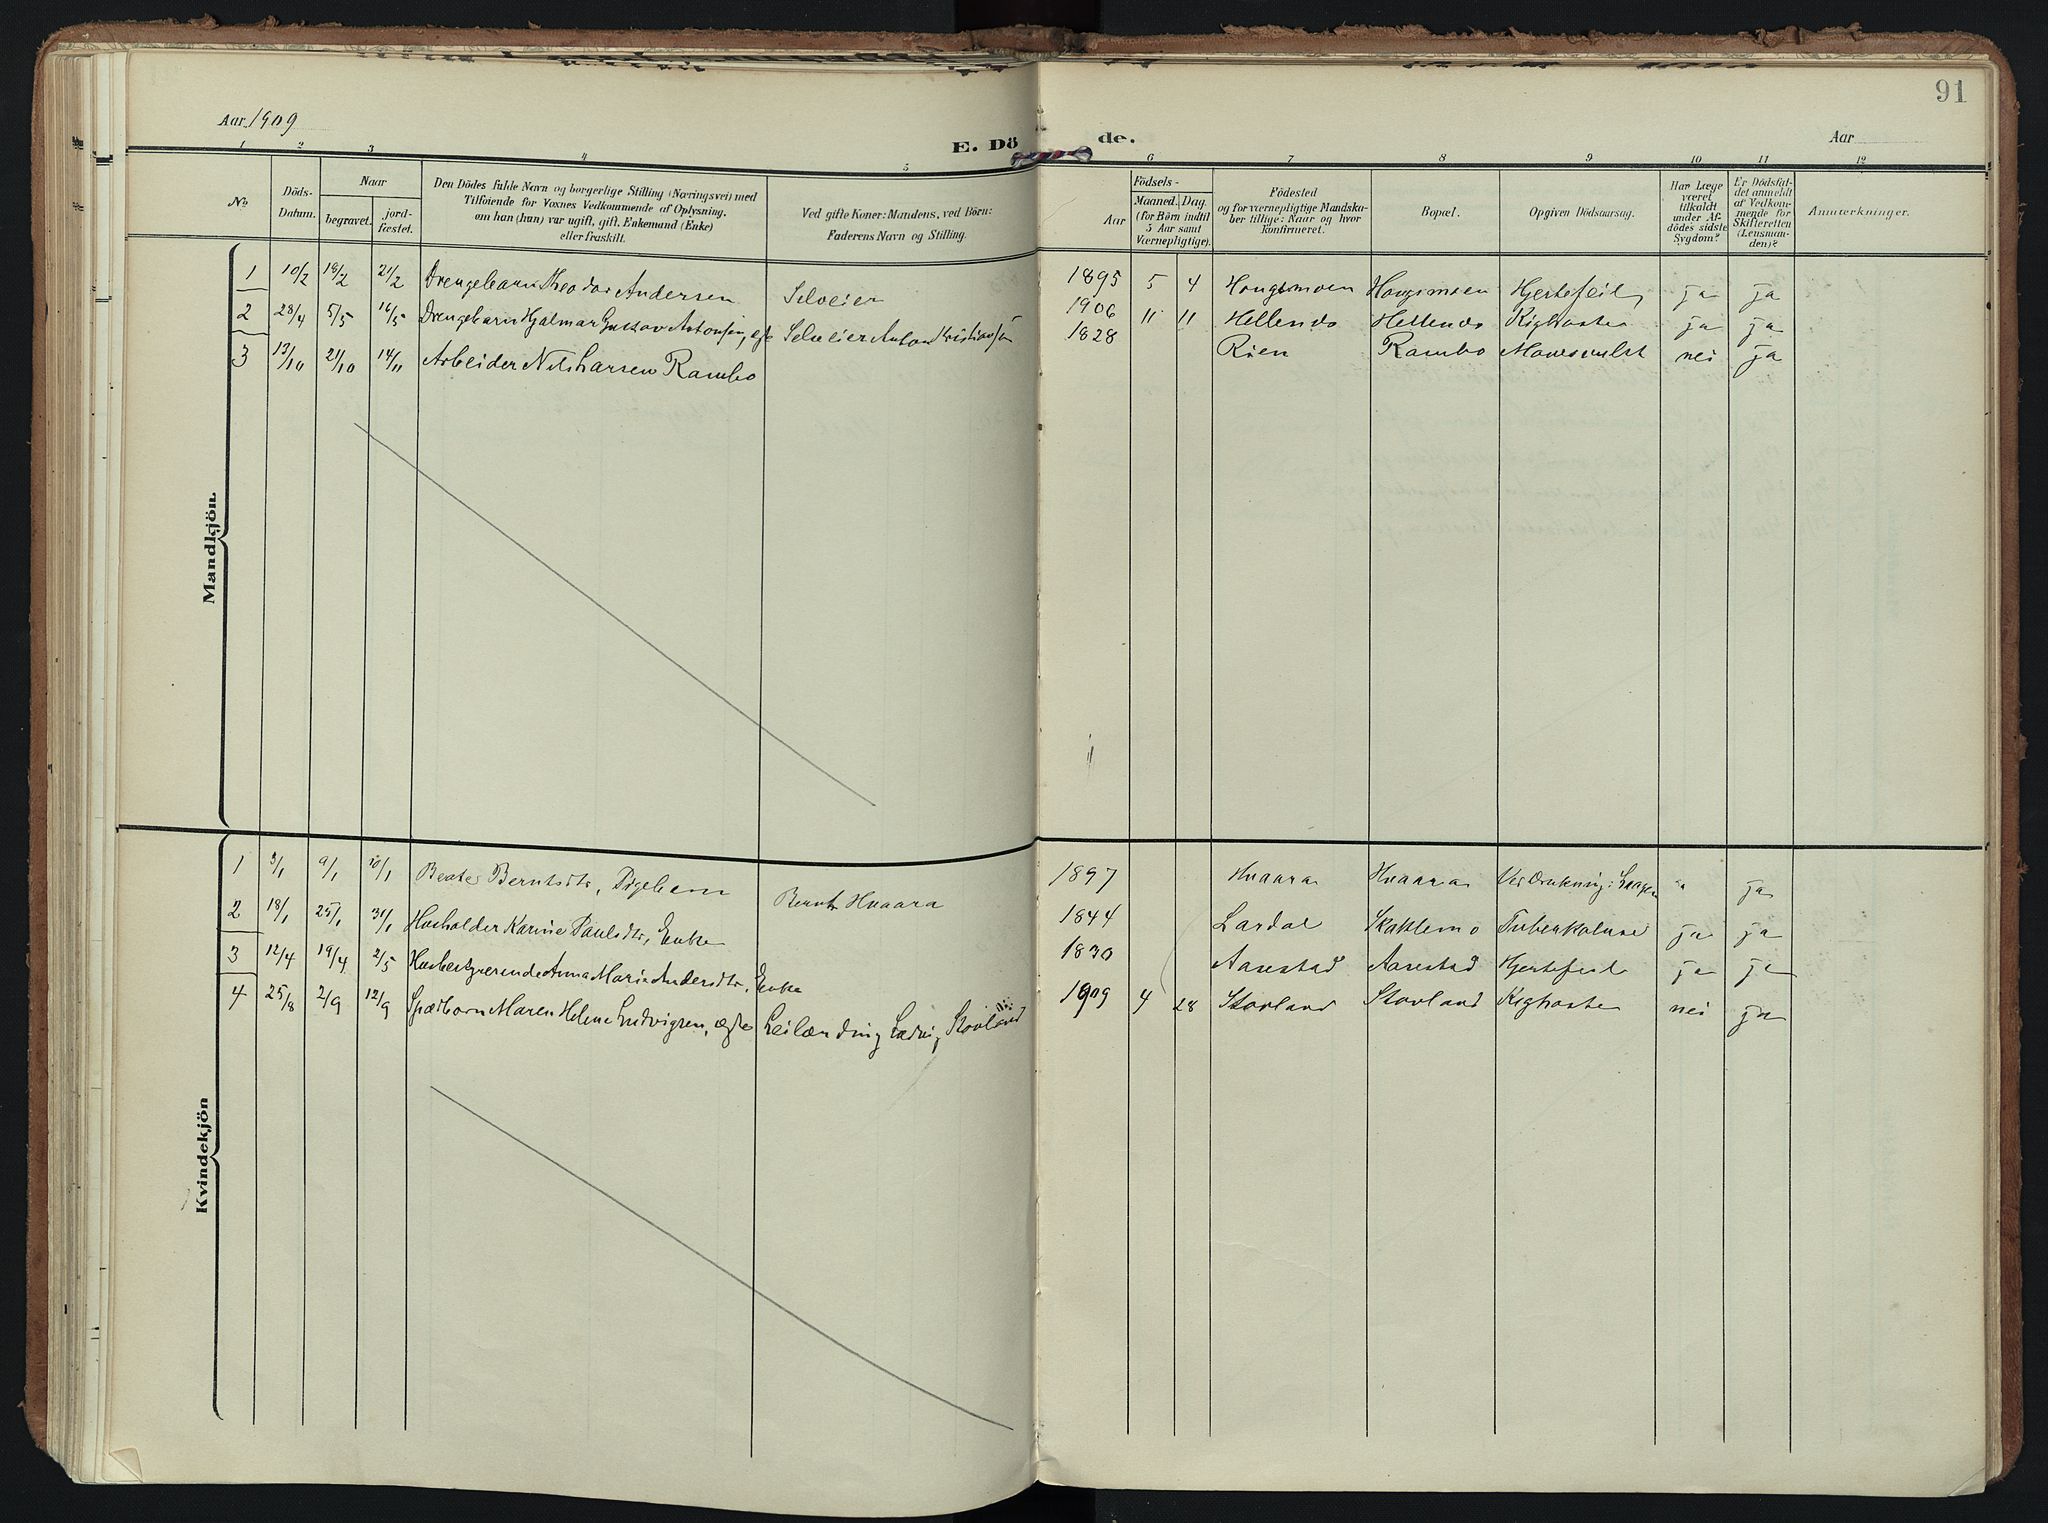 91
Aar 1909
E. Dö de.
Aar
1 2 3 4 5 6 7 8 9 10 11 12
No
Döds-Datum.
Naar
begravet.
jord-fæstet.
Den Dödes fulde Navn og borgerlige Stilling (Næringsvei) med
Tilföiende for Voxnes Vedkommende af Oplysning,
om han (hun) var ugift, gift, Enkemand (Enke)
eller fraskilt.
Ved gifte Koner: Mandens, ved Börn:
Faderens Navn og Stilling.
Födsels-
Aar
Maaned. Dag.
(for Börn indtil
5 Aar samt
Værnepligtige).
Födested
og for værnepligtige Mandska-
ber tillige: Naar og hvor
konfirmeret.
Bopæl.
Opgiven Dödsaarsag.
Har Læge
været
tilkaldt
under Af-
dödes sidste
Sygdom?
Er Dödsfal-
det anmeldt
af Vedkom-
mende for
Skifteretten
(Lensman-
den)?
Anmærkninger.
Mandkjön.
1 10/2 19/2 21/2 Drengebarn Theodor Andersen Selveier 1895 5 4 Haugsmoen Haugsmoen Hjertefeil ja ja
2 28/4 5/5 16/5 Drengebarn Hjalmar Gustav Antonsen, Selveier Anton Kristiansen 1906 11 11 Hellendo Hellendo Kighoste ja ja
3 13/10 21/10 14/11 Arbeider Nils Larsen Rambo 1828 Rien Rambo Mavesvulst nei ja
Kvindekjön
1 3/1 9/1 10/1 Beate Berntsdtr, Pigebarn Bernt Hvaara 1897 Hvaara Hvaara Ved Drukning i Laagen " ja
2 18/1 25/1 31/1 Husholder Karine Paulsdtr, Enke 1844 Lardal Skaklemo Tuberkulose ja ja
3 12/4 19/4 2/5 Husbestyrerinde Anna Maria Andersdtr, Enke 1830 Aarestad Aarestad Hjertefeil ja ja
4 25/8 2/9 12/9 Spædbarn Maren Helene Ludvigsen, ægte Leilænding Ludvig Stovland 1909 4 28 Stovland Stovland Kighoste nei ja